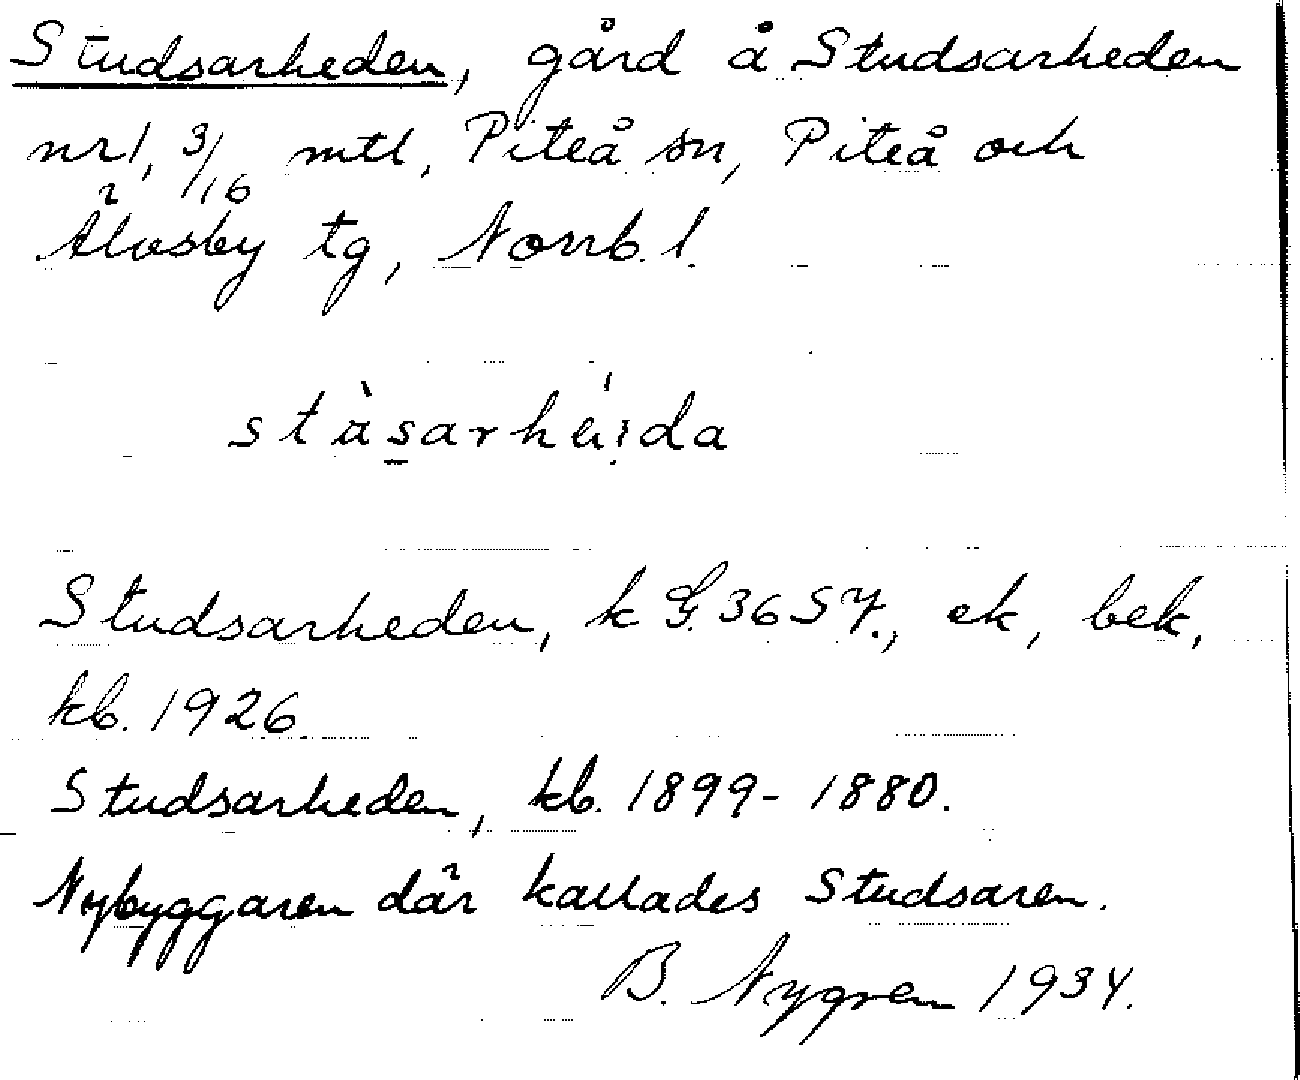 Studsarheden, gård å Studsarheden
nr 1, 3/16 mtl, Piteå sn, Piteå och
Älvsby tg, Norrb. l.
Studsarheden, k G. 36 S Y., ek, bek,
kb. 1926
Studsarheden, kb. 1899-1880.
Nybyggaren där kallades Studsaren.
B. Nygren 1934.